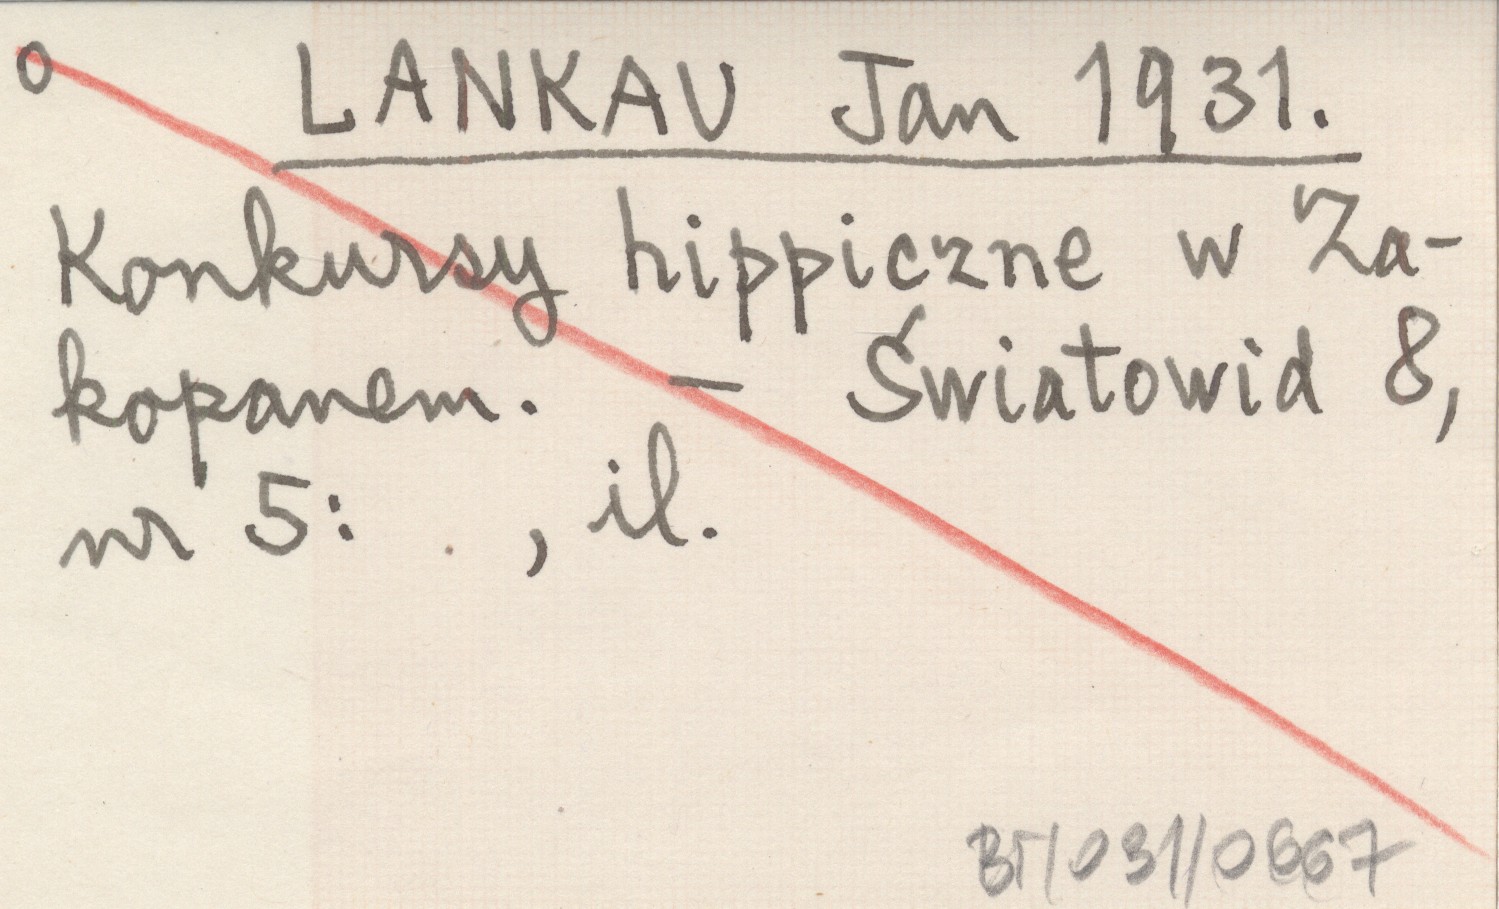 o LANKAU Jan 1931.
Konkursy hippiczne w Za-
kopanem. – Światowid 8,
nr 5: , il.
BT/031/0667